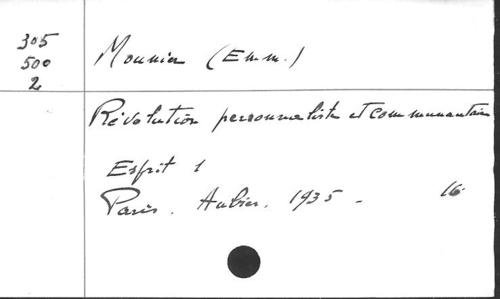 305
500
2
Mounier (Emm.)
Révolution personnaliste et communautaire
Esprit 1
Paris. Aubier. 1935 - 16